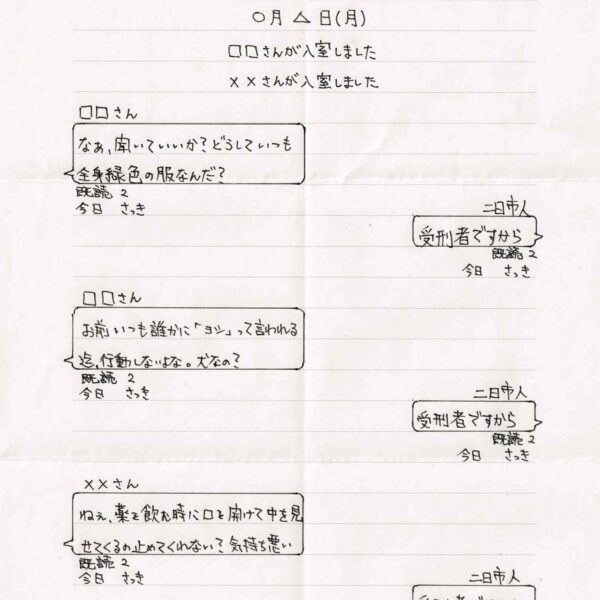 〇月△日(月)
□□さんが入室しました
××さんが入室しました
□□さん
なぁ、聞いていいか?どうしていつも
全身緑色の服なんだ?
既読 2
今日 さっき
二日市人
受刑者ですから
既読 2
今日 さっき
□□さん
お前いつも誰かに「ヨシ」って言われる
迄、行動しないよな。犬なの?
既読 2
今日 さっき
二日市人
受刑者ですから
既読 2
今日 さっき
××さん
ねぇ、薬を飲む時に口を開けて中を見
せてくるの止めてくれない?気持ち悪い
既読 2
今日 さっき
二日市人